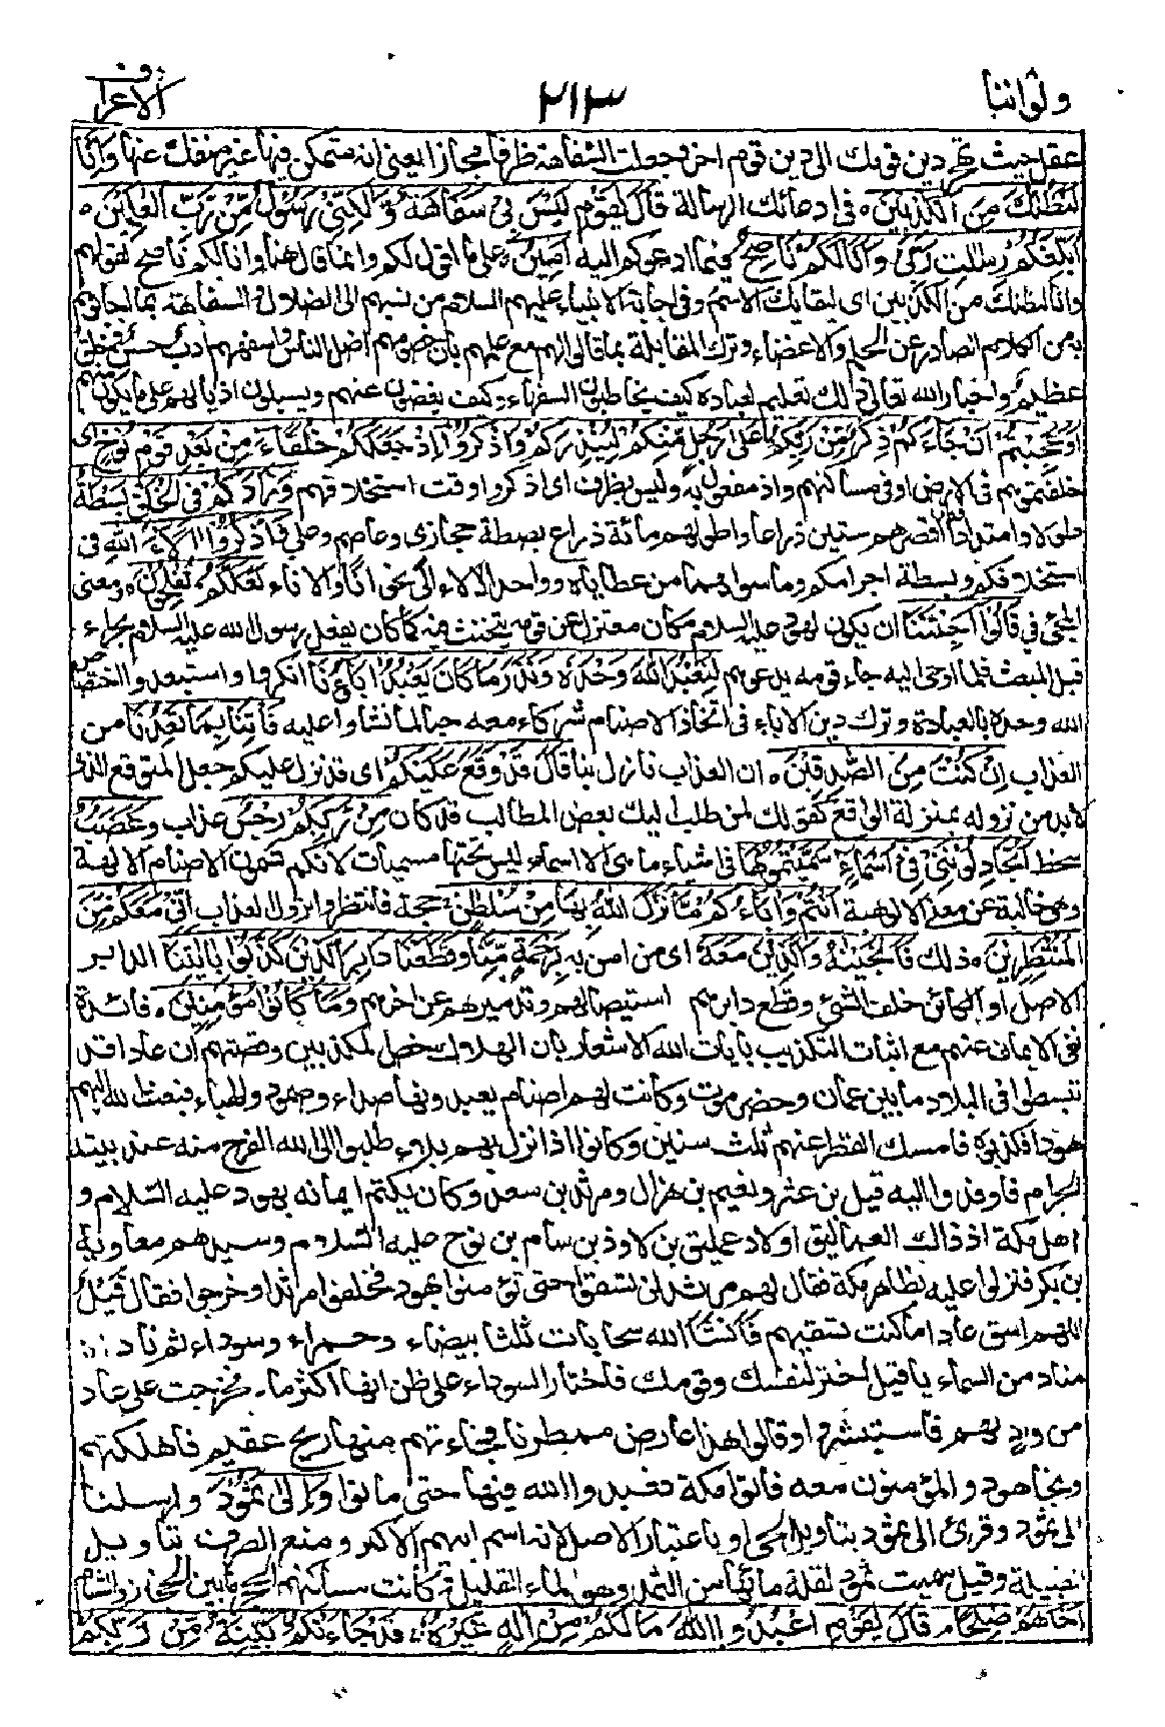 ولواننا ٢١٣ الاعراف
عقل حيث تهجر دين قومك الى دين قوم اخر وجعلت السفاهة ظرفا مجازا يعنى انه متمكن فيها غير منفك عنها وَاِنَّا
لَنَظُنُّكَ مِنَ الْكٰذِبِيْنَ ٥ فى ادعائك الرسالة قَالَ يٰقَوْمِ لَيْسَ بِىْ سَفَاهَةٌ وَّلٰكِنِّىْ رَسُوْلٌ مِّنْ رَّبِّ الْعٰلَمِيْنَ ٥
اُبَلِّغُكُمْ رِسٰلٰتِ رَبِّىْ وَاَنَا لَكُمْ نَاصِحٌ فيما ادعوكم اليه اَمِيْنٌ ٥ على ما اقول لكم وانما قال هنا وانا لكم ناصح لقولهم
وانا لنظنك من الكذبين اى ليقابل الاسم الاسم وفى اجابة الانبياء عليهم السلام من نسبهم الى الضلال والسفاهة بما اجابوهم
به من الكلام الصادر عن الحلم والاغضاء وترك المقابلة بما قالوا لهم مع علمهم بان خصومهم اضل الناس واسفههم ادب حسن وخلق
عظيم واخبار الله تعالى ذلك تعليم لعباده كيف يخاطبون السفهاء وكيف يغضون عنهم ويسبلون اذيالهم على ما يكون منهم
اَوَعَجِبْتُمْ اَنْ جَاءَكُمْ ذِكْرٌ مِّنْ رَّبِّكُمْ عَلٰى رَجُلٍ مِّنْكُمْ لِيُنْذِرَكُمْ وَاذْكُرُوْا اِذْ جَعَلَكُمْ خُلَفَاءَ مِنْ بَعْدِ قَوْمِ نُوْحٍ اى
خلفتموهم فى الارض او فى مساكنهم واذ مفعول به وليس بظرف اى اذكروا وقت استخلافكم وَزَادَكُمْ فِى الْخَلْقِ بَصْطَةً
طولا وامتدادا فكان اقصرهم ستين ذراعا واطولهم مائة ذراع بصطة حجازى وعاصم وعلى فَاذْكُرُوْا اٰلَاءَ اللهِ فى
استخلافكم وبسطة اجرامكم وما سواهما من عطاياه وواحد الالاء الى نحو انا والاناء لَعَلَّكُمْ تُفْلِحُوْنَ ٥ ومعنى
المجئ فى قَالُوْا اَجِئْتَنَا ان يكون لهود عليه السلام مكان معتزل عن قومه يتحنث فيه كما كان يفعل رسول الله عليه السلام بحراء
قبل المبعث فلما اوحى اليه جاء قومه يدعوهم لِنَعْبُدَ اللهَ وَحْدَهٗ وَنَذَرَ مَا كَانَ يَعْبُدُ اٰبَاؤُنَا انكروا واستبعدوا اختصاص
الله وحده بالعبادة وترك دين الاباء فى اتخاذ الاصنام شركاء معه حبا لما نشاوا عليه فَأْتِنَا بِمَا تَعِدُنَا من
العذاب اِنْ كُنْتَ مِنَ الصّٰدِقِيْنَ ٥ ان العذاب نازل بنا قَالَ قَدْ وَقَعَ عَلَيْكُمْ اى قد نزل عليكم جعل المتوقع الذى
لابد من نزوله بمنزلة الواقع كقولك لمن طلب اليك بعض المطالب قد كان مِنْ رَّبِّكُمْ رِجْسٌ عذاب وَّغَضَبٌ
سخط اَتُجَادِلُوْنَنِىْ فِىْ اَسْمَاءٍ سَمَّيْتُمُوْهَا فى اشياء ما هى الا اسماء ليس تحتها مسميات لانكم تسمون الاصنام الالهة
وهى خالية عن معنى الالوهية اَنْتُمْ وَاٰبَاؤُكُمْ مَّا نَزَّلَ اللهُ بِهَا مِنْ سُلْطٰنٍ حجة فَانْتَظِرُوْا نزول العذاب اِنِّىْ مَعَكُمْ مِّنَ
الْمُنْتَظِرِيْنَ ٥ ذلك فَاَنْجَيْنٰهُ وَالَّذِيْنَ مَعَهٗ اى من امن به بِرَحْمَةٍ مِّنَّا وَقَطَعْنَا دَابِرَ الَّذِيْنَ كَذَّبُوْا بِاٰيٰتِنَا الدابر
الاصل او الكائن خلف الشئ وقطع دابرهم استيصالهم وتدميرهم عن اخرهم وَمَا كَانُوْا مُؤْمِنِيْنَ ٥ فائدة
نفى الايمان عنهم مع اثبات التكذيب بآيات الله الاشعار بان الهلاك خص المكذبين وقصتهم ان عادا قد
تبسطوا فى البلاد ما بين عمان وحضرموت وكانت لهم اصنام يعبدونها صداء وصمود والهباء فبعث الله اليهم
هودا فكذبوه فامسك القطر عنهم ثلث سنين وكانوا اذا نزل بهم بلاء طلبوا الى الله الفرج منه عند بيته
الحرام فاوفدوا اليه قيل بن عثر ونعيم بن هزال ومرثد بن سعد وكان يكتم ايمانه بهود عليه السلام و
اهل مكة اذ ذاك العماليق اولاد عمليق بن لاوذ بن سام بن نوح عليه السلام وسيدهم معاوية
بن بكر فنزلوا عليه بظاهر مكة فقال لهم مرثد لن تسقوا حتى تؤمنوا بهود فخلفوا مرثدا وخرجوا فقال قَيْلٌ
اللهم اسق عادا ما كنت تسقيهم فانشأ الله سحابات ثلثا بيضاء وحمراء وسوداء ثم ناداه
مناد من السماء يا قيل اختر لنفسك وقومك فاختار السوداء على ظن انها اكثر ماء فخرجت على عاد
من واد لهم فاستبشروا وقالوا هذا عارض ممطرنا فجاءتهم منها ريح عقيم فاهلكتهم
ونجا هود والمؤمنون معه فاتوا مكة فعبدوا الله فيها حتى ماتوا وَاِلٰى ثَمُوْدَ وارسلنا
الى ثمود وقرئ الى ثمود بتاويل الحى او باعتبار الاصل لانه اسم ابيهم الاكبر ومنع الصرف بتاويل
القبيلة وقيل سميت ثمود لقلة مائها من الثمد وهو الماء القليل وكانت مساكنهم الحجر بين الحجاز والشام
اَخَاهُمْ صٰلِحًا قَالَ يٰقَوْمِ اعْبُدُوا اللهَ مَا لَكُمْ مِّنْ اِلٰهٍ غَيْرُهٗ قَدْ جَاءَتْكُمْ بَيِّنَةٌ مِّنْ رَّبِّكُمْ